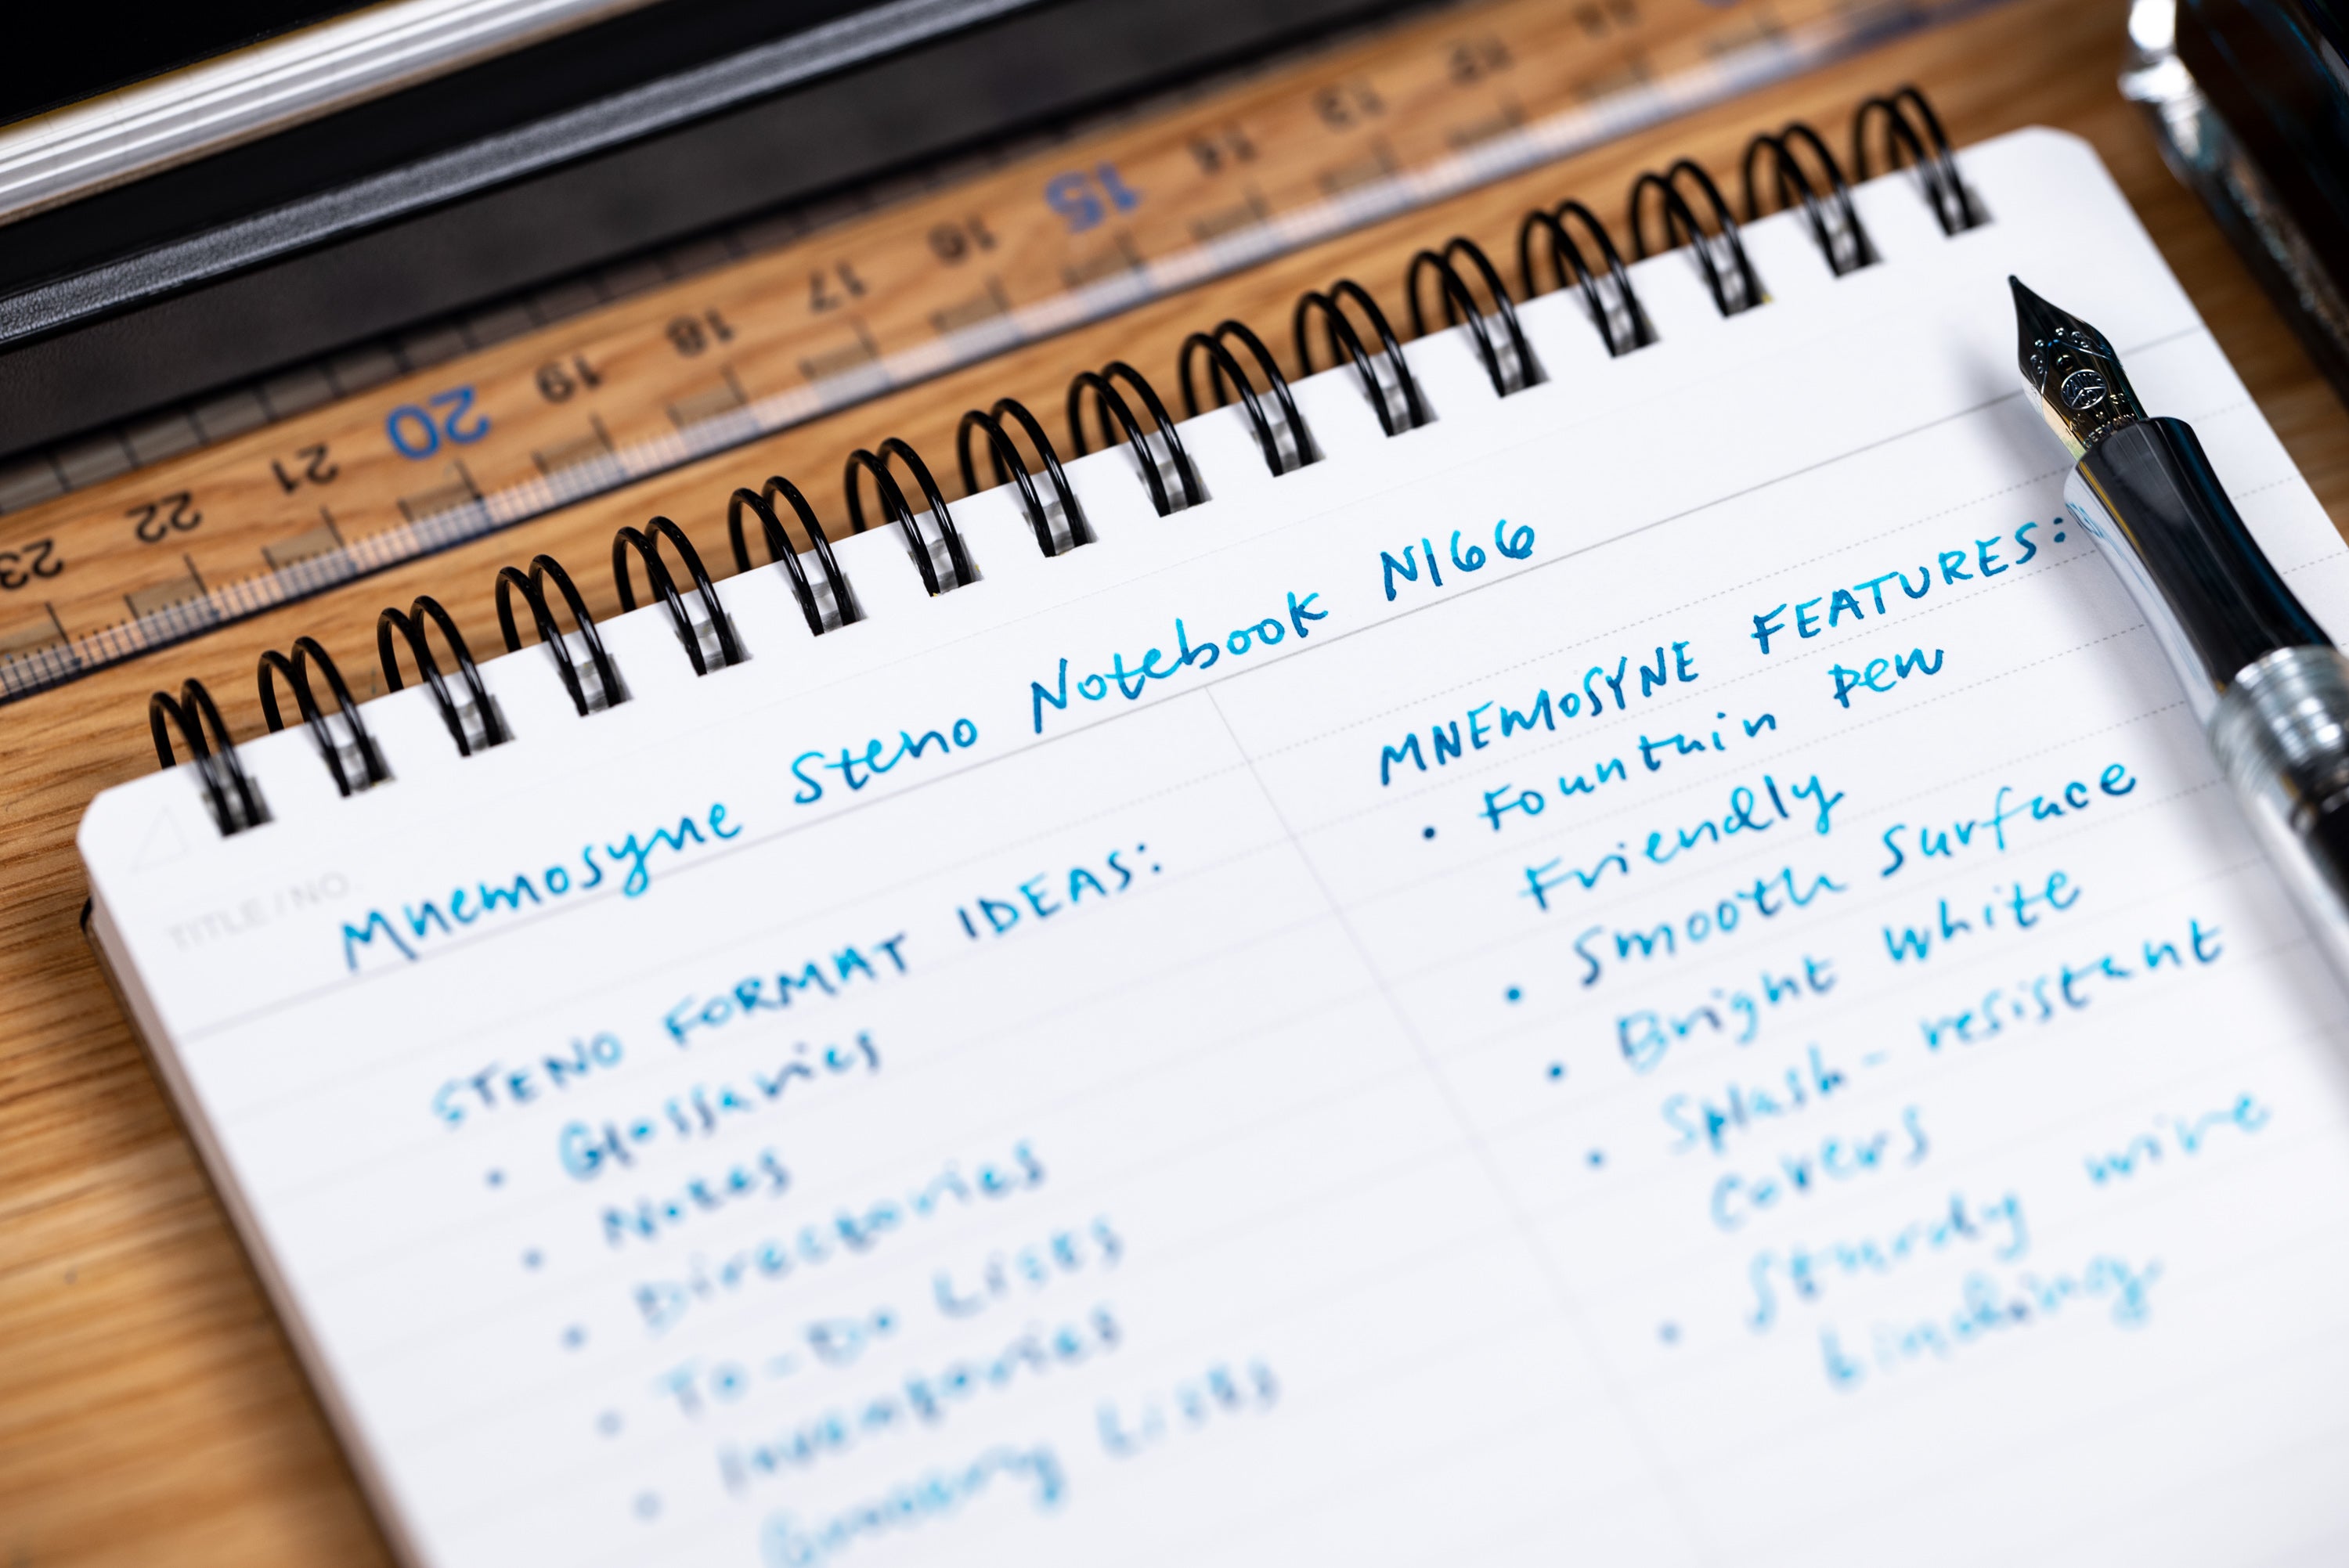 23 22 21 20 19 18 17 16 15 14 13 12
TITLE / NO.
Mnemosyne Steno Notebook N166
STENO FORMAT IDEAS:
• Glossaries
• Notes
• Directories
• To-Do Lists
• Inventories
Grocery Lists
MNEMOSYNE FEATURES:
• Fountain pen
Friendly
• Smooth surface
• Bright white
• Splash-resistant
covers
• Sturdy wire
binding